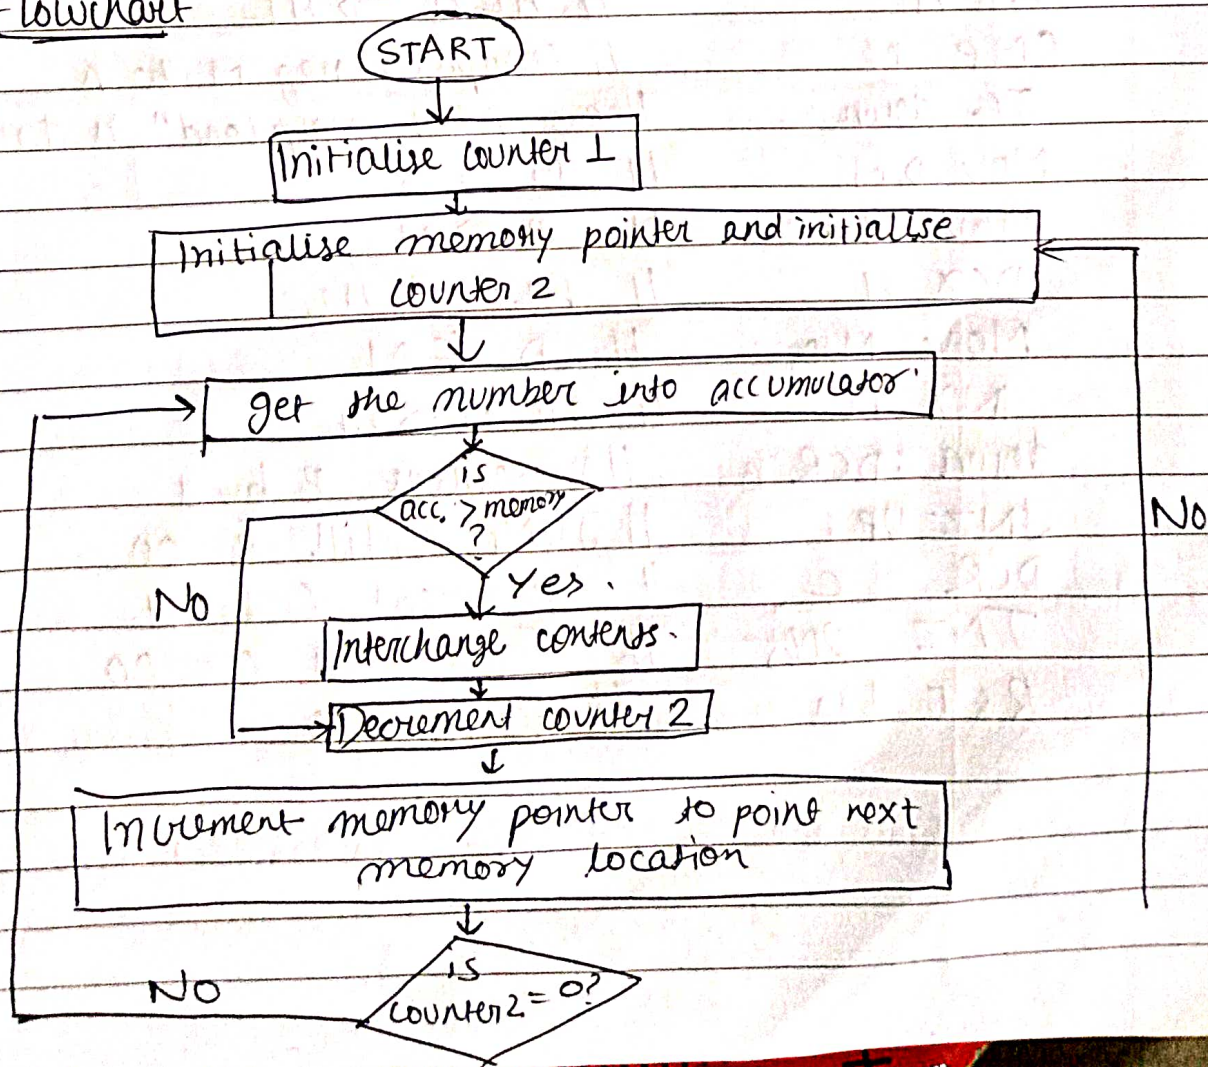 Flowchart
START
Initialise counter 1
Initialise memory pointer and initialise
counter 2
get the number into accumulator.
is
acc. > memory
?
No
Yes.
No
Interchange contents.
Decrement counter 2
Increment memory pointer to point next
memory location
is
counter 2 = 0?
No